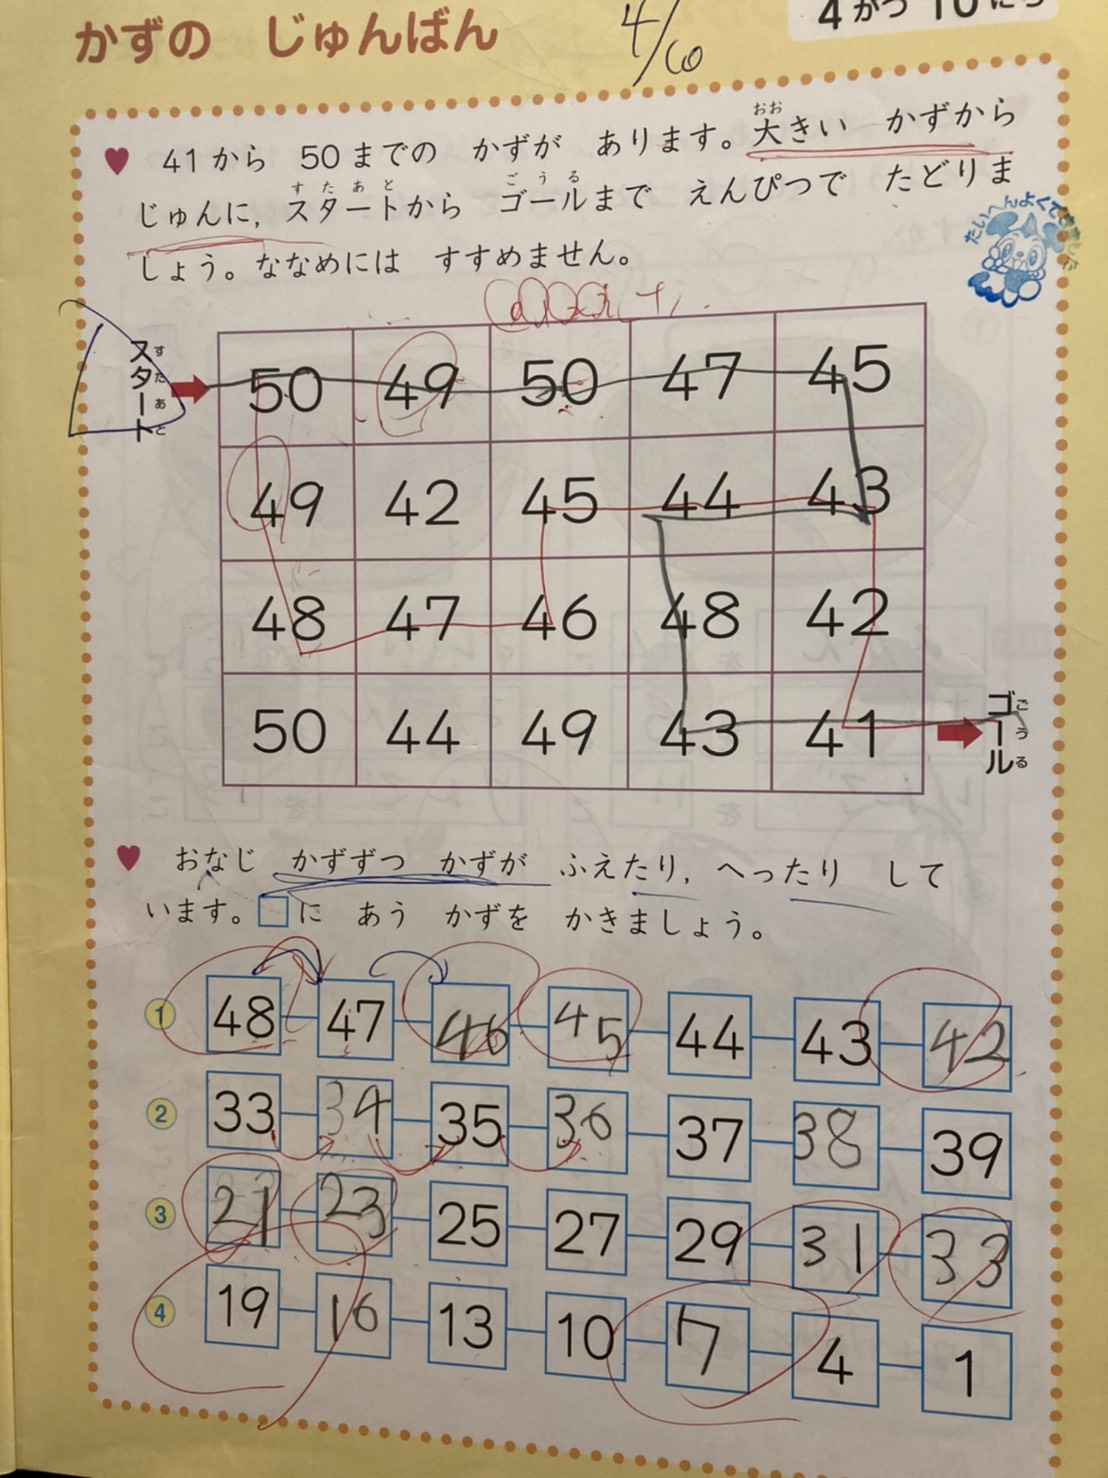 かずの じゅんばん
4/10
4がつ 10にち
♥ 41から 50までの かずが あります。大きい かずから
おお
じゅんに，スタートから ゴールまで えんぴつで たどりま
すたあと ごうる
しょう。ななめには すすめません。
たいへんよくできました
スタート
すたあと
50 49 50 47 45
49 42 45 44 43
48 47 46 48 42
50 44 49 43 41
ゴール
ごうる
♥ おなじ かずずつ かずが ふえたり，へったり して
います。□に あう かずを かきましょう。
① 48 47 46 45 44 43 42
② 33 34 35 36 37 38 39
③ 21 23 25 27 29 31 33
④ 19 16 13 10 7 4 1